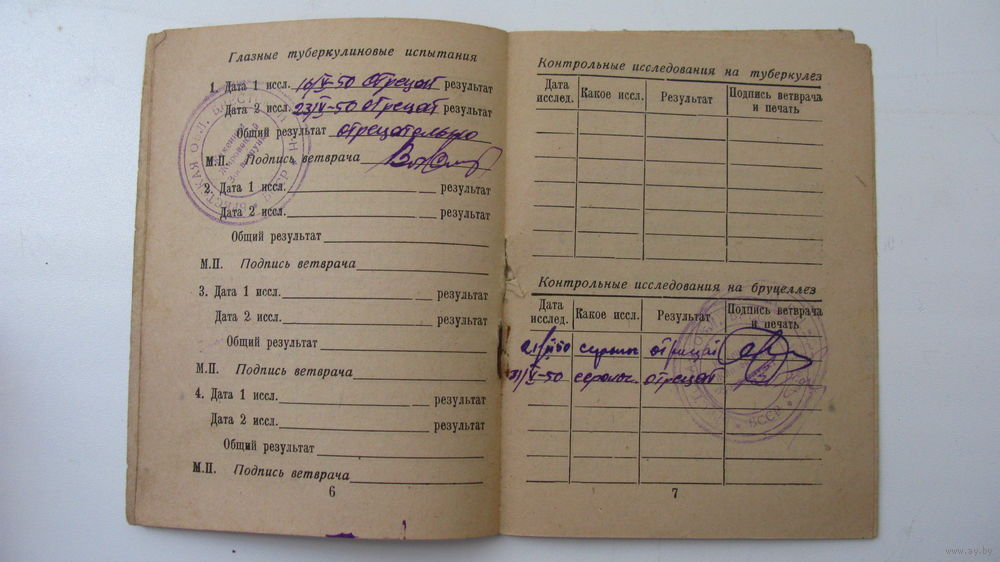 Глазные туберкулиновые испытания
1. Дата 1 иссл. 16/V-50 Отрецат результат
Дата 2 иссл. 23/V-50 отрецат результат
Общий результат отрецательно
М.П. Подпись ветврача
2. Дата 1 иссл. результат
Дата 2 иссл. результат
Общий результат
М.П. Подпись ветврача
3. Дата 1 иссл. результат
Дата 2 иссл. результат
Общий результат
М.П. Подпись ветврача
4. Дата 1 иссл. результат
Дата 2 иссл. результат
Общий результат
М.П. Подпись ветврача
6
Контрольные исследования на туберкулез
Дата исслед. Какое иссл. Результат Подпись ветврача и печать
Контрольные исследования на бруцеллез
Дата исслед. Какое иссл. Результат Подпись ветврача и печать
отрецат
31/V-50 серолог. отрецат
БССР
7
www.ay.by